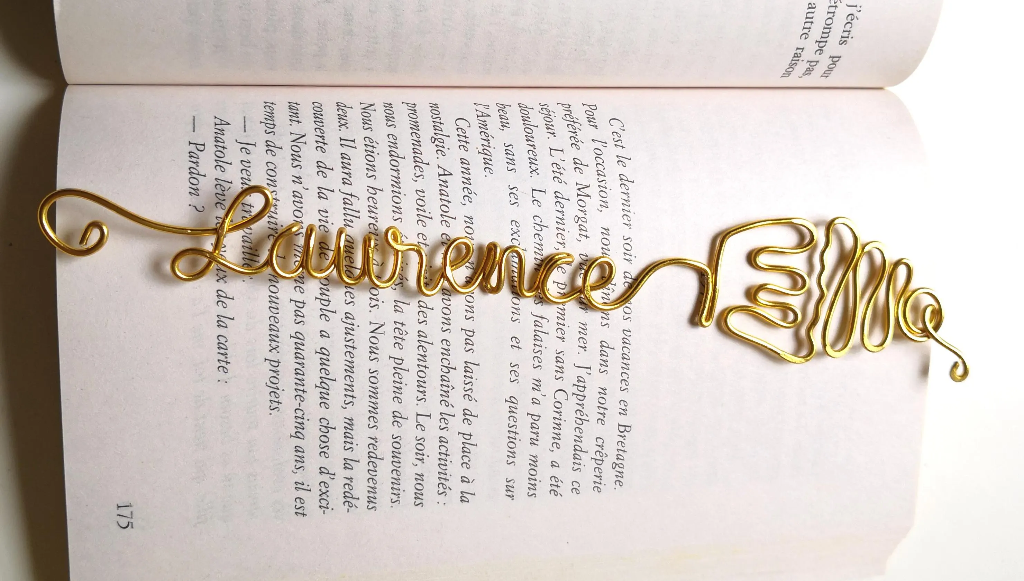 j'écris pour
étrompe pas,
autre raison
Laurence
C'est le dernier soir de nos vacances en Bretagne.
Pour l'occasion, nous dînons dans notre crêperie
préférée de Morgat, vue sur mer. J'appréhendais ce
séjour. L'été dernier, le premier sans Corinne, a été
douloureux. Le chemin des falaises m'a paru moins
beau, sans ses exclamations et ses questions sur
l'Amérique.
Cette année, nous n'avons pas laissé de place à la
nostalgie. Anatole et avons enchaîné les activités :
promenades, voile et des alentours. Le soir, nous
nous endormions la tête pleine de souvenirs.
Nous étions heureux Nous sommes redevenus
deux. Il aura fallu quelques ajustements, mais la redé-
couverte de la vie de couple a quelque chose d'exci-
tant. Nous n'avons même pas quarante-cinq ans, il est
temps de construire de nouveaux projets.
— Je veux travailler.
Anatole lève les yeux de la carte :
— Pardon ?
175